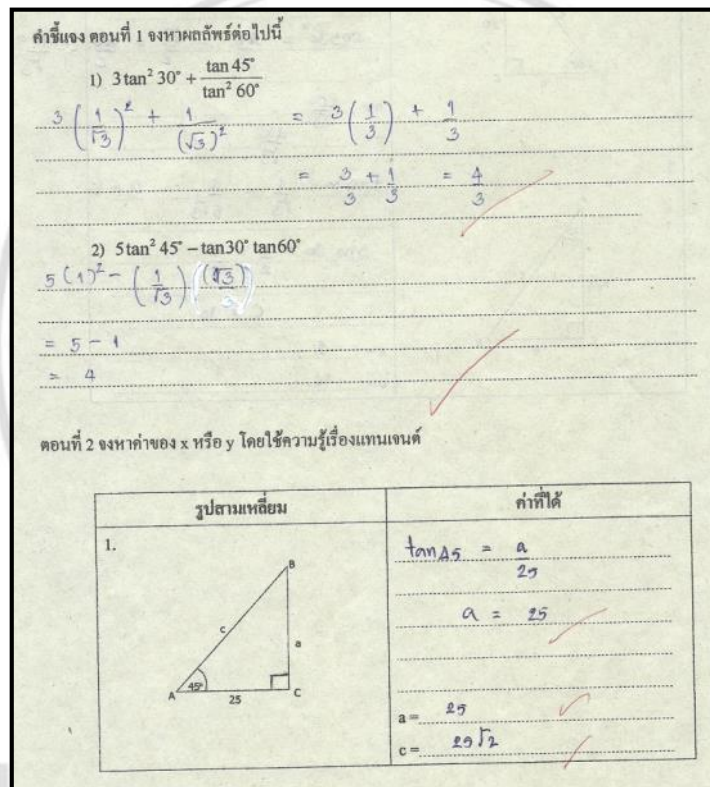 คำชี้แจง ตอนที่ 1 จงหาผลลัพธ์ต่อไปนี้
1) 3 tan² 30° + tan 45° / tan² 60°
3 (1/√3)² + 1/(√3)² = 3 (1/3) + 1/3
= 3/3 + 1/3 = 4/3
2) 5 tan² 45° − tan30° tan60°
5 (1)² − (1/√3) (√3)
= 5 − 1
= 4
ตอนที่ 2 จงหาค่าของ x หรือ y โดยใช้ความรู้เรื่องแทนเจนต์
รูปสามเหลี่ยม ค่าที่ได้
1.
B
c
a
A 45° 25 C
tan 45 = a/25
a = 25
a = 25
c = 25√2